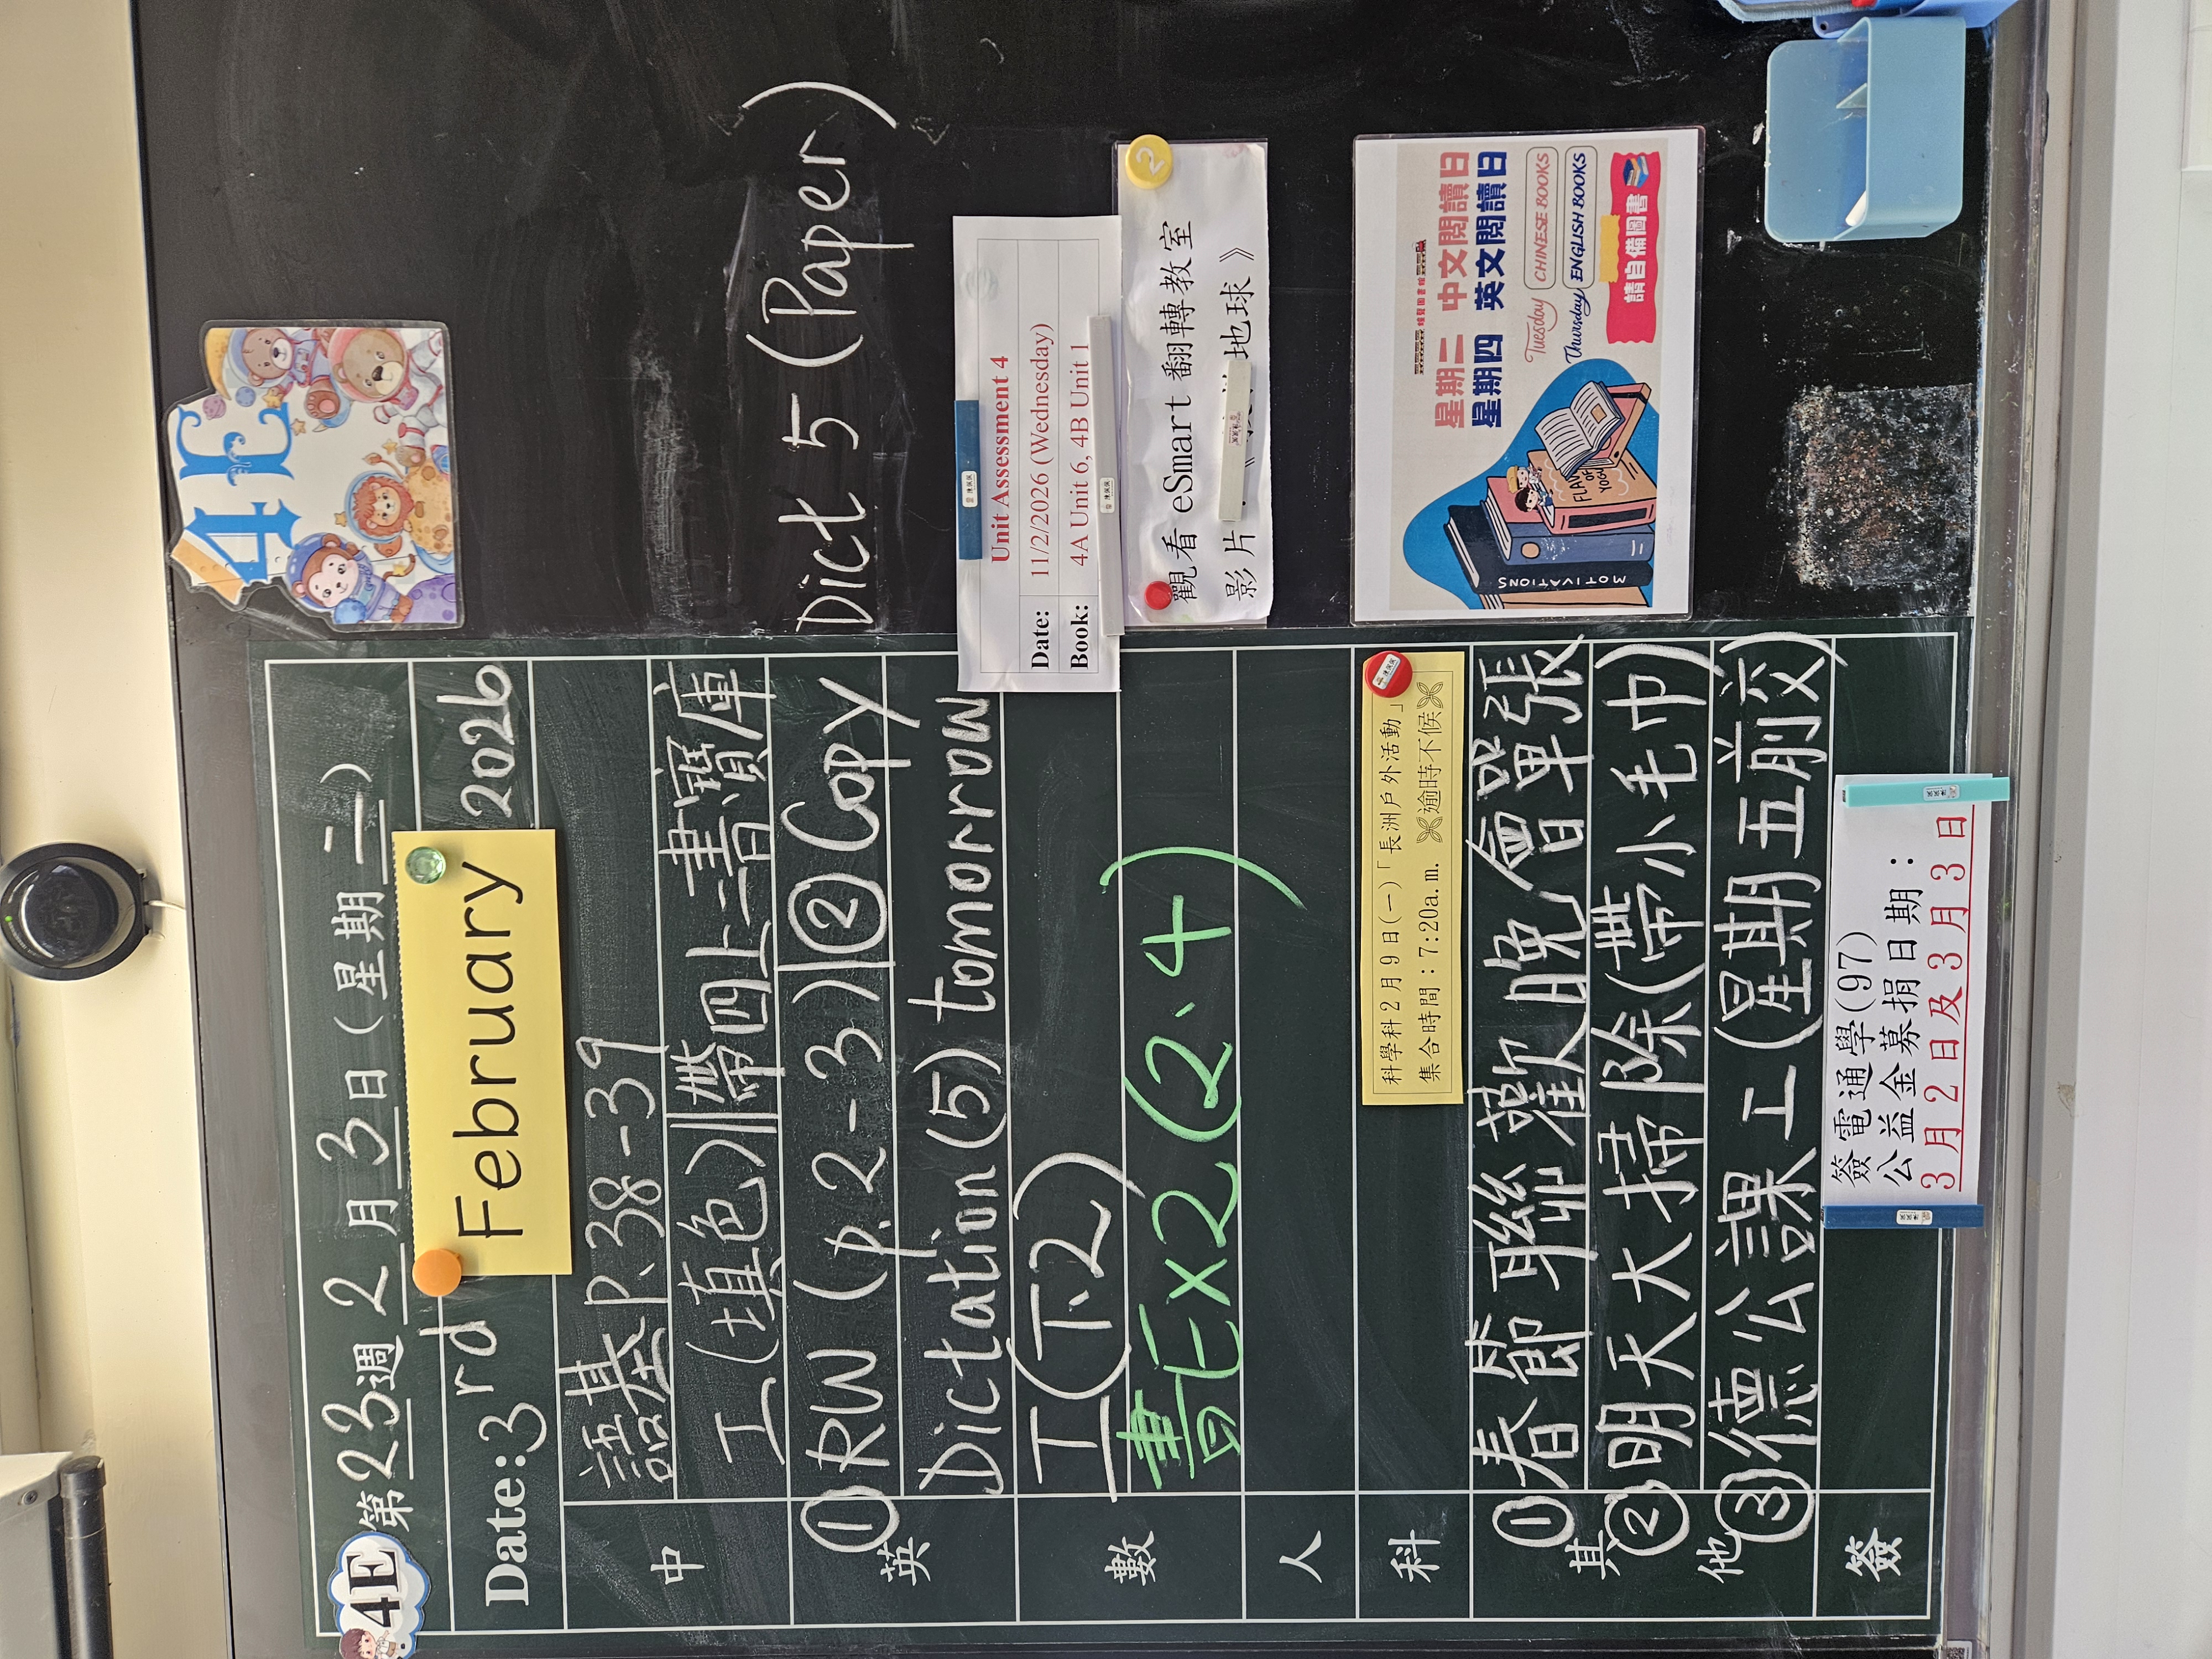 4E
第23週 2月3日(星期二)
Date: 3rd February 2026
中
語基P.38-39
工(填色)帶四上書寶庫
英
①RW (p.2-3) ② Copy
Dictation (5) tomorrow
數
工(下2)
書Ex2(2、4)
人
科
科學科2月9日(一)「長洲戶外活動」
集合時間:7:20a.m. 逾時不候
其他
①春節聯歡晚會單張
②明天大掃除(帶小毛巾)
③德公課工(星期五前交)
簽
簽電通學(97)
公益金募捐日期:
3月2日及3月3日
4E
Dict 5 (Paper)
Unit Assessment 4
Date: 11/2/2026 (Wednesday)
Book: 4A Unit 6, 4B Unit 1
觀看 eSmart 翻轉教室
影片 地球》
2
星期二 中文閱讀日
星期四 英文閱讀日
Tuesday CHINESE BOOKS
Thursday ENGLISH BOOKS
請自備圖書
MOTIVATIONS